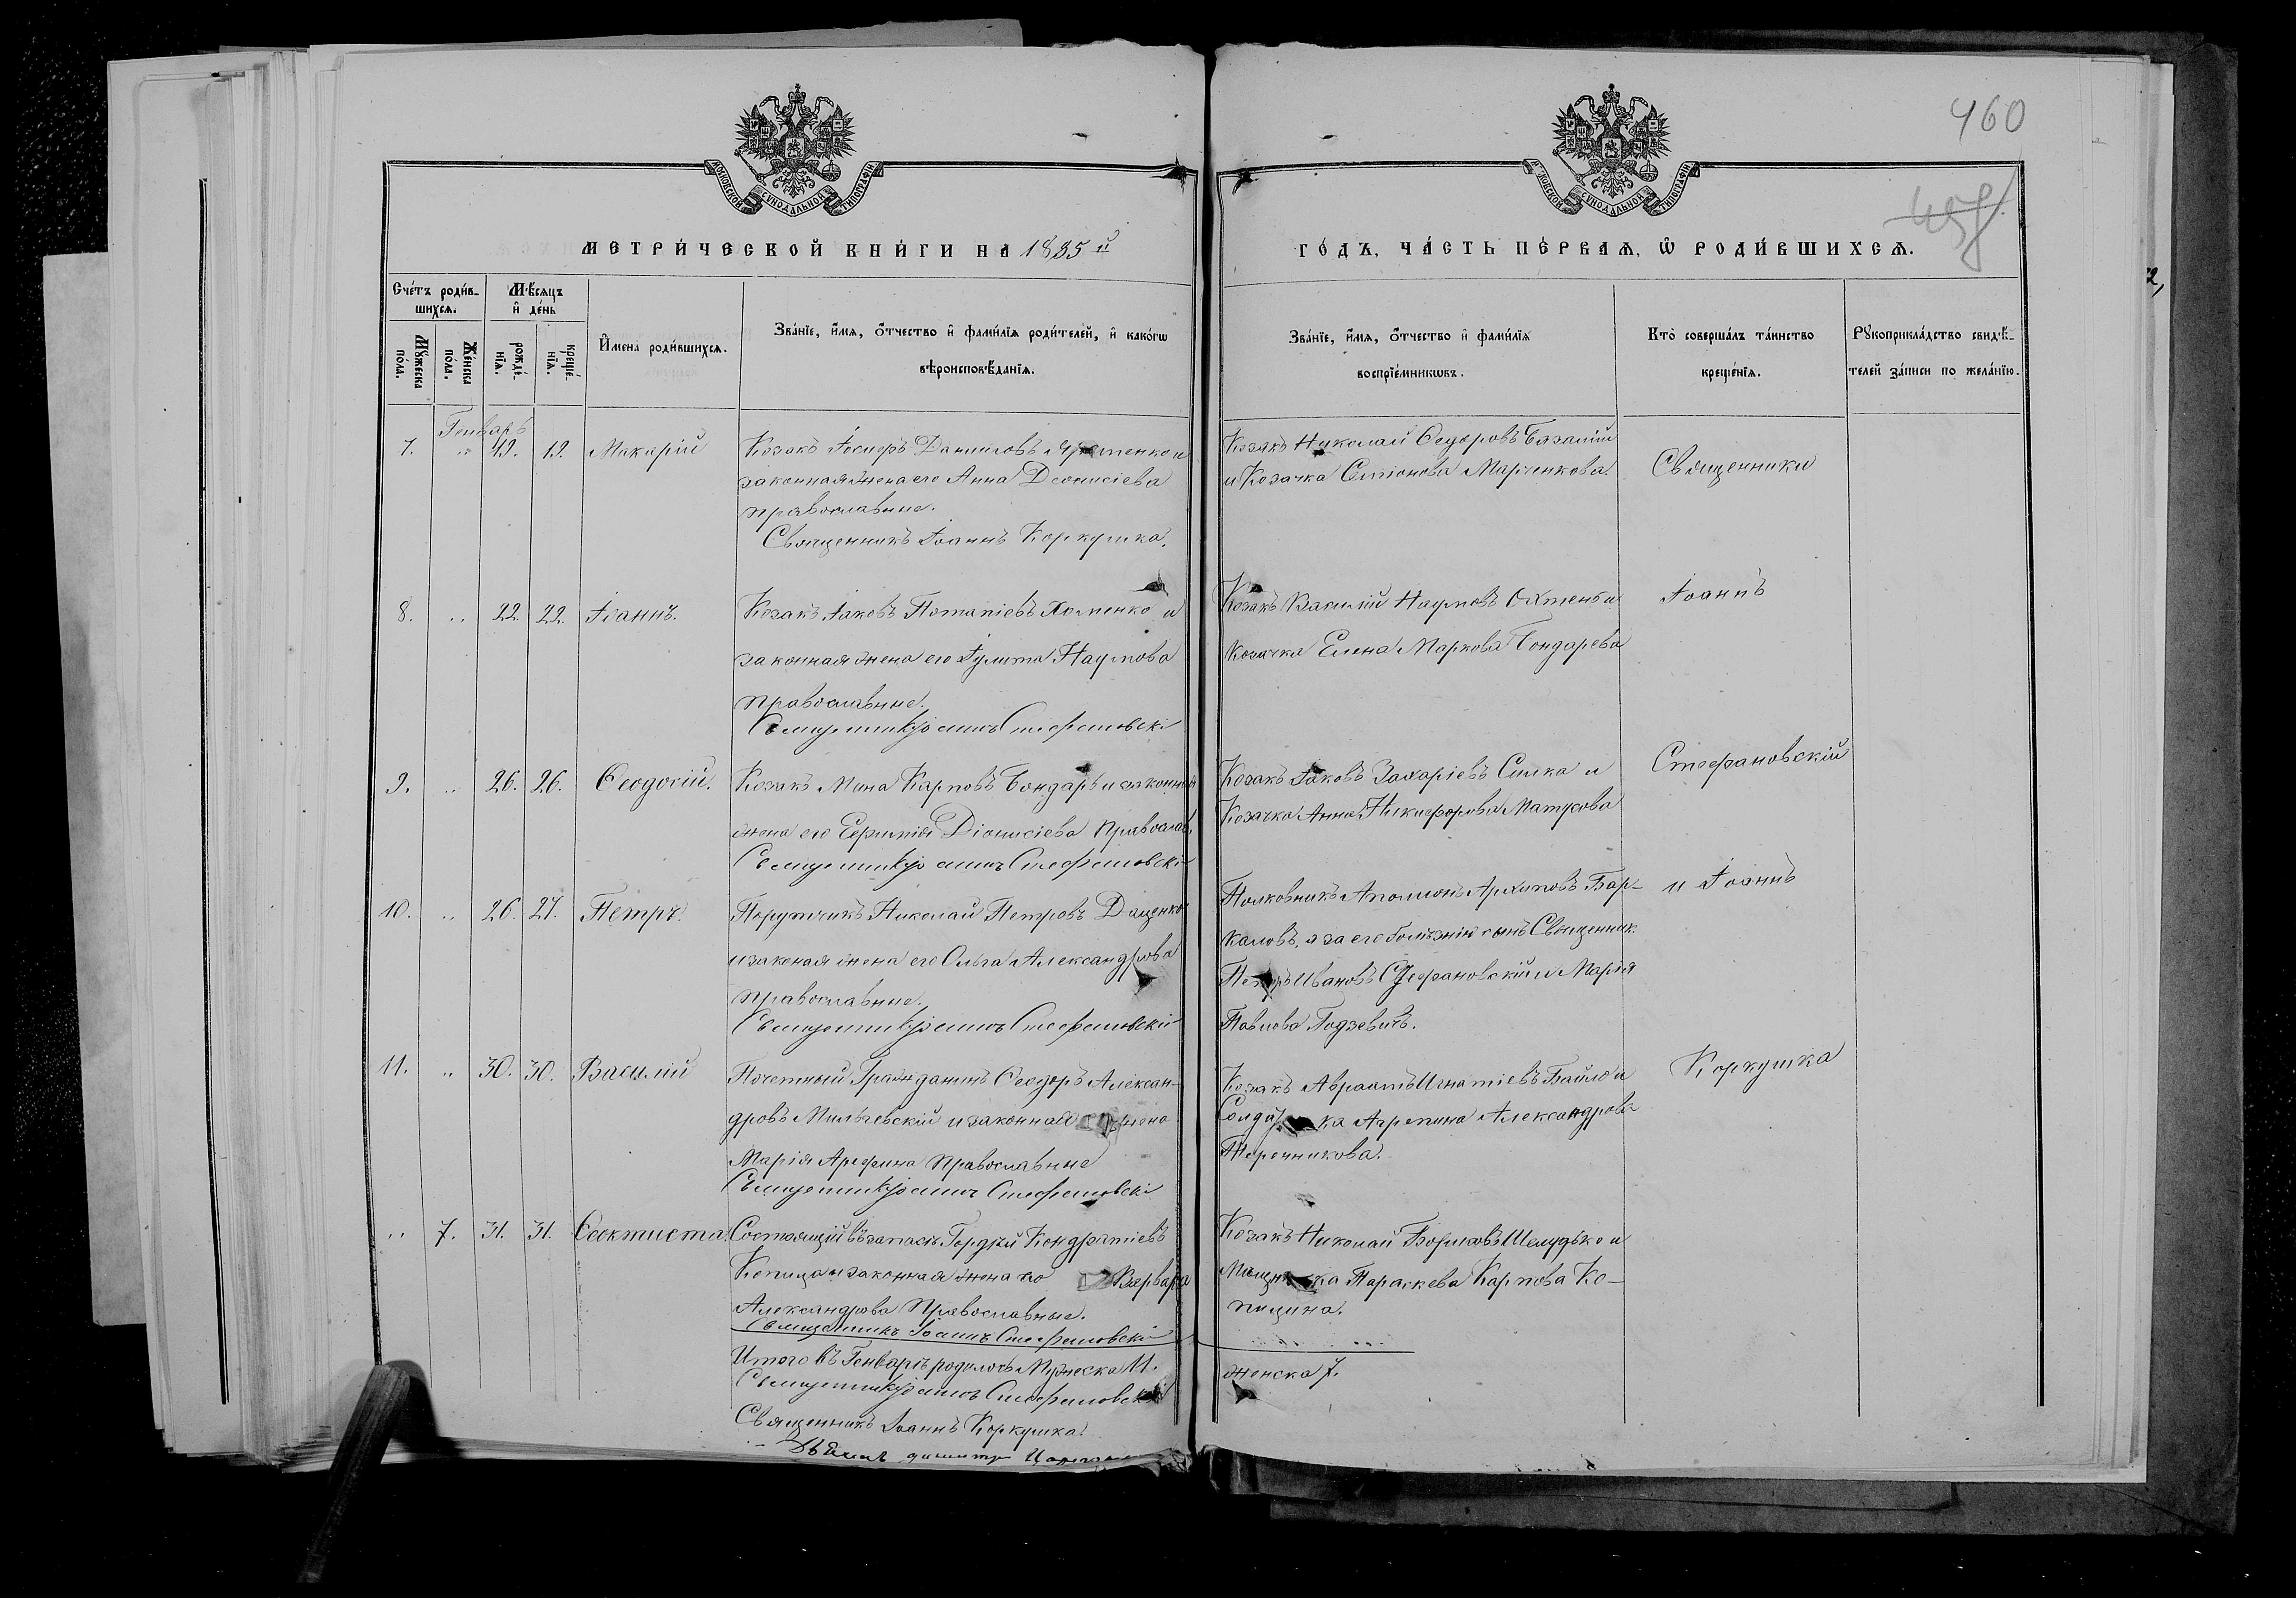 460
МОСКОВСКОЙ СУНОДАЛЬНОЙ ТИПОГРАФІИ
МОСКОВСКОЙ СУНОДАЛЬНОЙ ТИПОГРАФІИ
МЕТРИ́ЧЕСКОЙ КНИ́ГИ НА 1885 й
ГО́ДЪ, ЧА́СТЬ ПЕ́РВАЯ, Ѡ РОДИ́ВШИХСЯ.
Сче́тъ роди́в-
шихся.
Мꙋжеска по́ла.
Же́нска по́ла.
Мѣсяцъ и де́нь
рожде́нїя.
креще́нїя.
Имена роди́вшихся.
Зва́нїе, и́мя, о́тчество и фами́лїя роди́телей, и како́гѡ
вѣроисповѣданїя.
Зва́нїе, и́мя, о́тчество и фами́лїя
воспрїе́мникѡвъ.
Кто̀ соверша́лъ та́инство
креще́нїя.
Рꙋкоприкла́дство свидѣ-
телей за́писи по жела́нїю.
Генварь
7. " 19. 19. Макарій
Козакъ Іосифъ Даниловъ и
законная жена его Анна Діонисіева
православные.
Священникъ Іоаннъ Коркушка.
Козакъ Николай Ѳедоровъ
и Козачка Марченкова.
8. " 22. 22. Іоаннъ.
Козакъ Іаковъ Потапіевъ Хоменко и
законная жена его Іулита Наумова
православные.
Священникъ Іоаннъ Стефановскій
Козакъ Василій Наумовъ и
Козачка Елена Маркова Бондарева
9. " 26. 26. Ѳеодосій.
Козакъ Мина Карповъ Бондарь и законная
жена его Діонисіева Православ.
Священникъ Іоаннъ Стефановскій
Козакъ Іаковъ Захаріевъ Силка и
Козачка Анна Никифорова Матусова
10. " 26. 27. Петръ.
Порутчикъ Николай Петровъ Даценко
и законая жена его Ольга Александрова
православные.
Священникъ Іоаннъ Стефановскій
Полковникъ Аполлонъ Архиповъ Бар-
каловъ, а за его болѣзнію сынъ Священник.
Петръ Ивановъ Стефановскій и Марія
Павлова Годзевичъ.
11. " 30. 30. Василій
Почетный Гражданинъ Ѳеодоръ Алексан-
дровъ Мильчевскій и законная жена
Марія Арефина Православные
Священникъ Іоаннъ Стефановскій
Козакъ Авраамъ Игнатіевъ Байло и
Солдатка Агрепина Александрова
" 7. 31. 31. Ѳеоктиста.
Состоящій въ запасѣ Гордѣй Кондратіевъ
Копица и законная жена его Варвара
Александрова Православные.
Священникъ Іоаннъ Стефановскій
Козакъ Николай Борисовъ Шелудько и
Мещанка Параскева Карпова Ко-
пицина.
Священники
Іоаннъ
Стефановскій
и Іоаннъ
Коркушка
Итого въ Генварѣ родилось Мужеска 11.
женска 7.
Священникъ Іоаннъ Стефановскій
Священникъ Іоаннъ Коркушка.